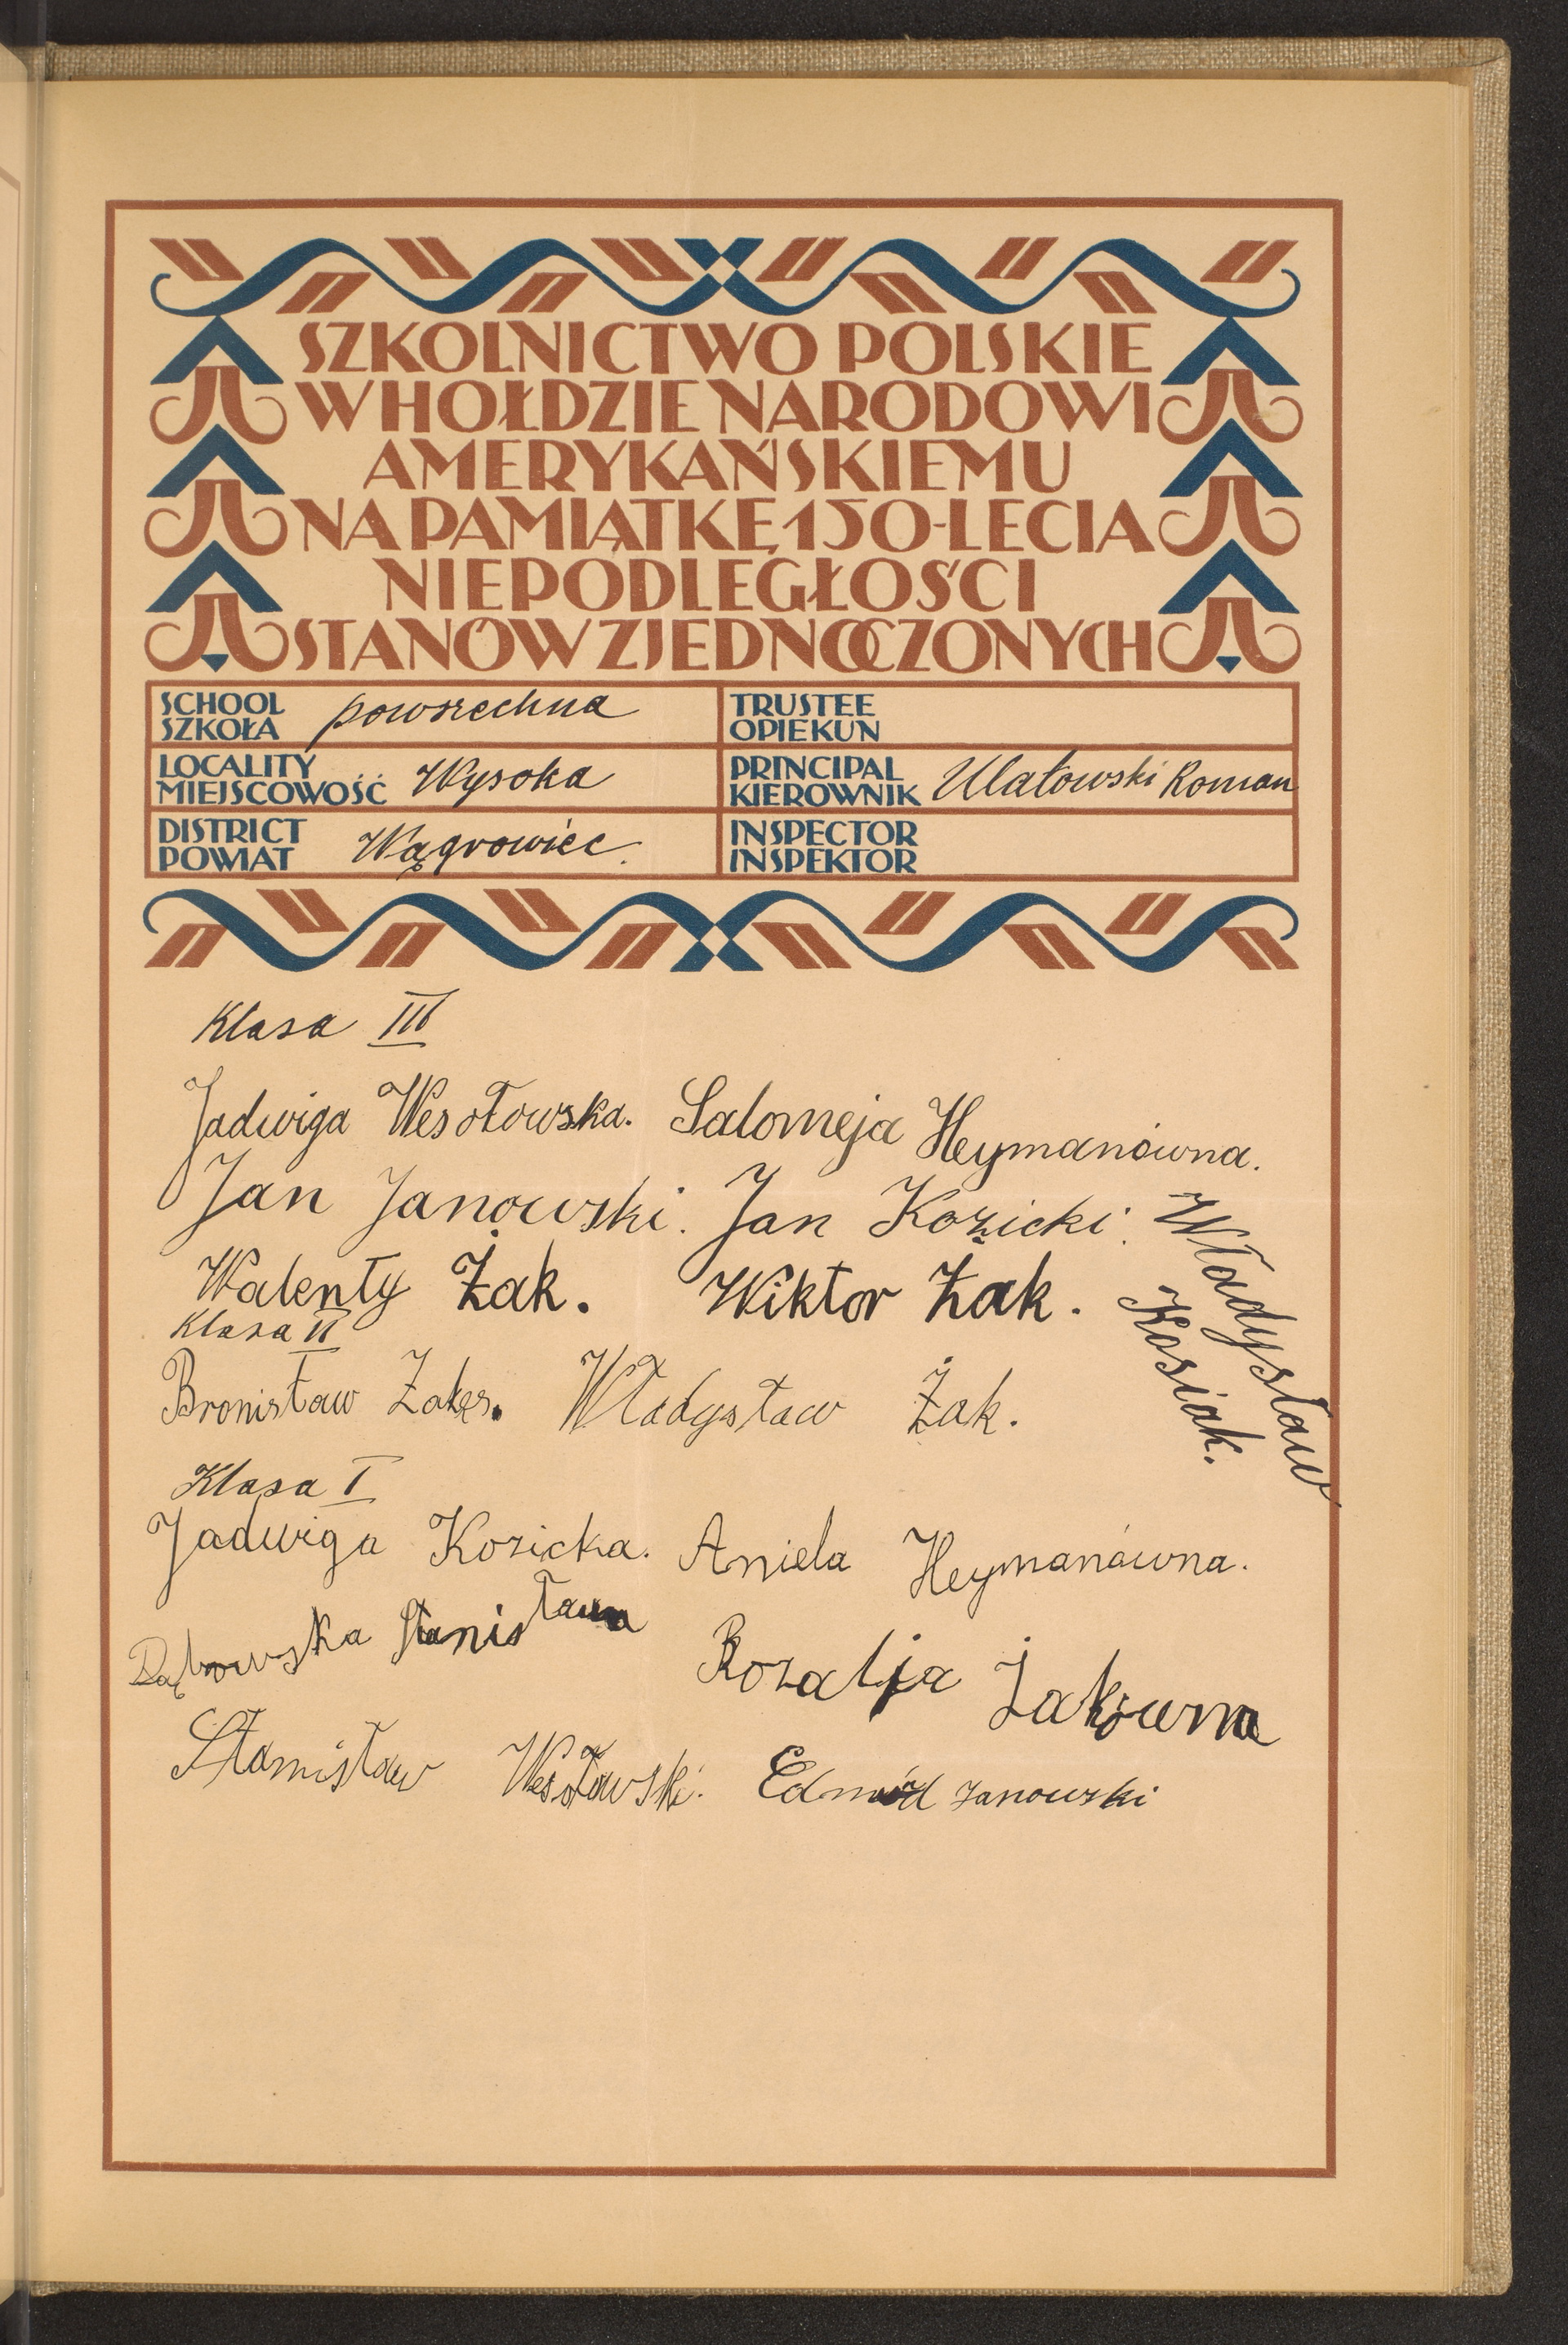 SZKOLNICTWO POLSKIE
W HOŁDZIE NARODOWI
AMERYKAŃSKIEMU
NA PAMIĄTKĘ 150-LECIA
NIEPODLEGŁOŚCI
STANÓW ZJEDNOCZONYCH
SCHOOL
SZKOŁA powszechna
TRUSTEE
OPIEKUN
LOCALITY
MIEJSCOWOŚĆ Wysoka
PRINCIPAL
KIEROWNIK Ulatowski Roman
DISTRICT
POWIAT Wągrowiec.
INSPECTOR
INSPEKTOR
Klasa III
Jadwiga Wesołowska. Salomeja Heymanówna.
Jan Janowski. Jan Kozicki.
Władysław
Kosiak.
Walenty Żak. Wiktor Żak.
Klasa II
Bronisław Władysław Żak.
Klasa I
Jadwiga Kozicka. Aniela Heymanówna.
Dąbrowska Stanisława
Rozalja Żakówna
Stanisław Wesołowski. Edmód Janowski